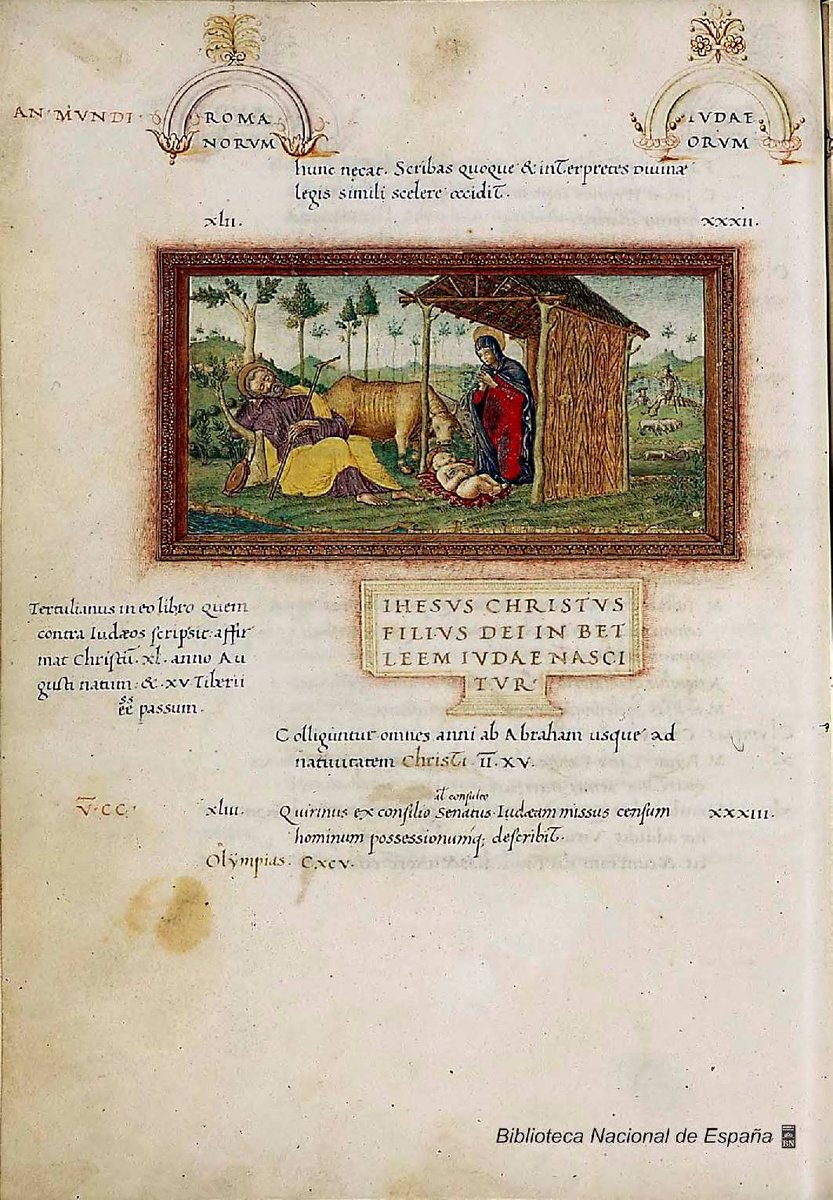 AN·MVNDI·
ROMA
NORVM
IVDAE
ORVM
hunc necat. Scribas quoque & interpretes Divinæ
legis simili scelere occidit.
xlii.
xxxii.
Tertulianus in eo libro quem
contra Iudæos scripsit affir
mat Christũ ·xl· anno Au
gusti natum: & ·xv· Tiberii
ee passum.
IHESVS CHRISTVS
FILIVS DEI IN BET
LEEM IVDAE NASCI
TVR·
Colliguntur omnes anni ab Abraham usque ad
nativitatem Christi ·II·XV·
al consulto
V·CC·
xliii.
Quirinus ex consilio Senatus Iudæam missus censum
xxxiii.
hominum possessionumq; describit.
Olympias. Cxcv.
Biblioteca Nacional de España
BN